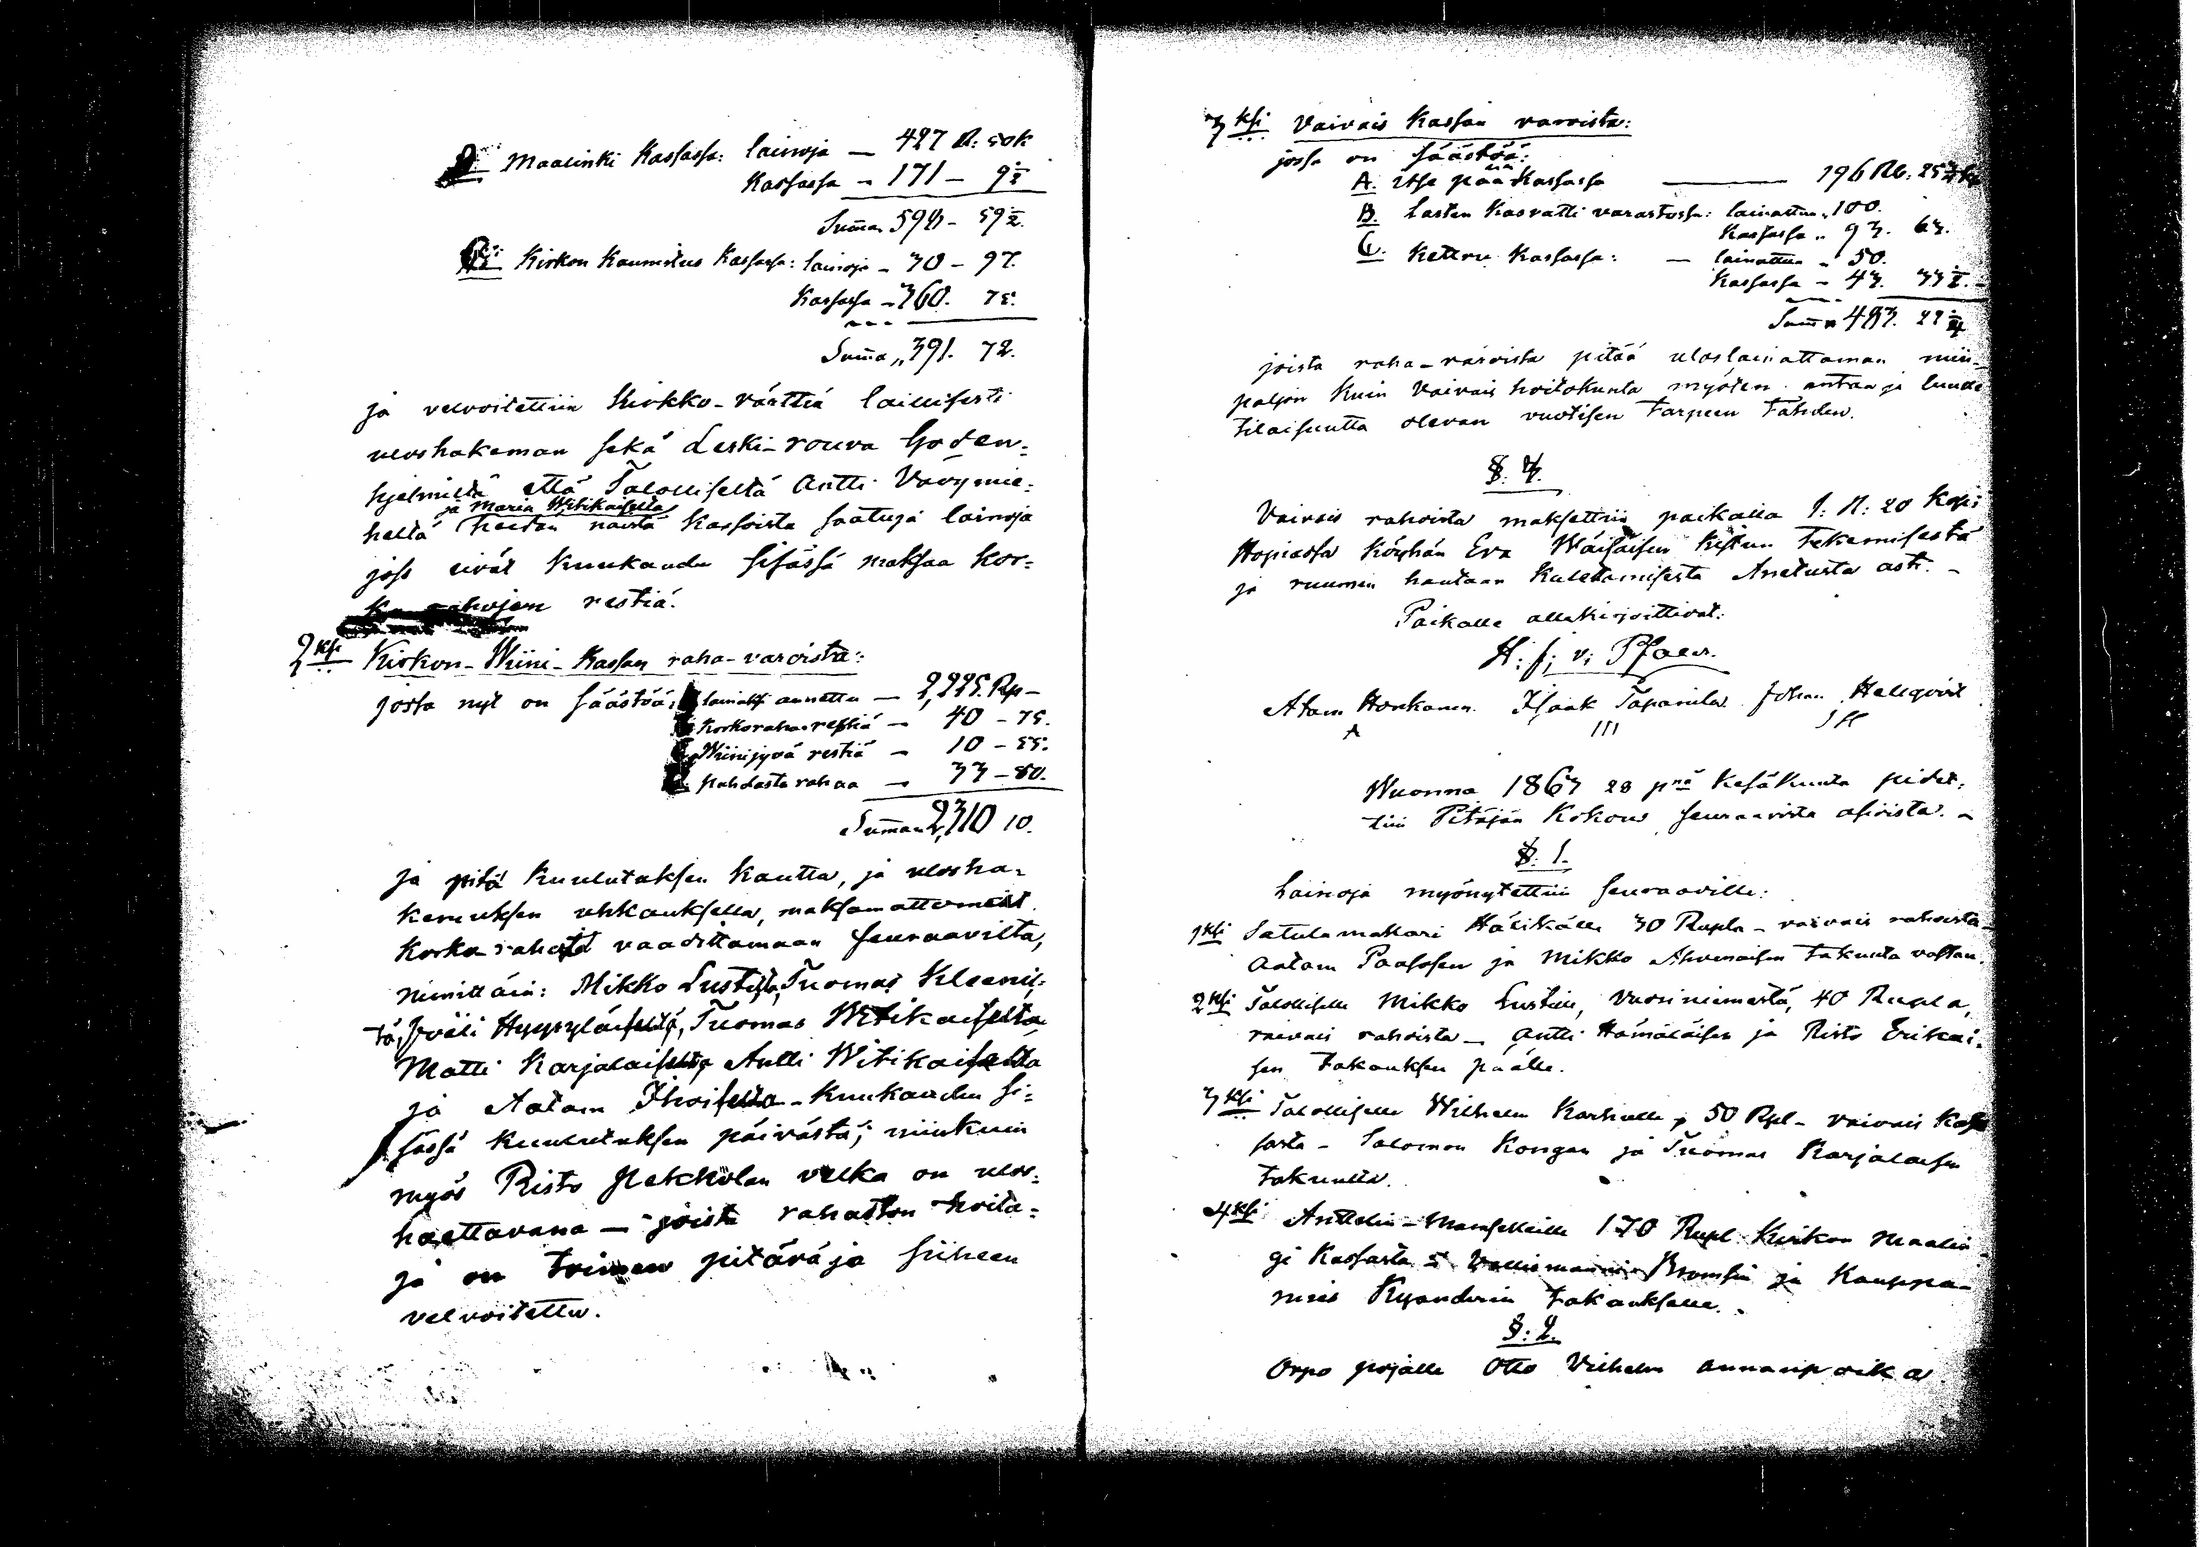 B. Maalinki Kassassa: lainoja — 427 R: 50 k
Kassassa — 171 — 9½
Summa 598 — 59½.
C: Kirkon Kaunistus Kassassa: lainoja — 30 — 97.
Kassassa — 360. 75.
Summa „ 391. 72.
ja velvoitettiin Kirkko-värttiä laillisesti
uloshakeman sekä Leski-rouva Goden-
hjelmiltä että Talolliselta Antti Vävymie-
ja Maria Witikaiselta
heltä heidän näistä Kassoista saatuja lainoja
joss eivät Kuukauden sisässä maksaa Kor-
rahojen restiä.
2ksi Kirkon-Wiini-Kassan raha-varoista:
josta nyt on säästöä: lainaksi annettu — 2,225. Rp —
Korkoraha restiä — 40 — 75.
Wiinijyvä restiä — 10 — 55.
puhdasta rahaa — 33 — 80.
Summa 2,310 10.
ja pitä Kuulutuksen Kautta, ja ulosha-
kemuksen uhkauksella, maksamattomat
Korko rahat vaadittamaan seuraavilta,
nimittäin: Mikko Lustilta, Tuomas Kleemi-
tä, Yväli Hyypyläiseltä, Tuomas Witikaiselta
Matti Karjalaiselta, Antti Witikaiselta
ja Aatam Ihoiselta — Kuukauden si-
sässä Kuulutuksen päivästä; niinkuin
myös Risto Hekkolan velka on ulos-
haettavana — joista rahaston hoita-
ja on toimen pitävä ja siiheen
velvoitettu.
3ksi Vaivais Kassan varoista:
jossa on säästöä:
A. itse pää Kassassa — 196 Rb: 25¾ k
B. Lasten Kasvatti varastossa: lainattu „ 100.
Kassassa „ 93. 63.
C. Ketteru Kassassa: — lainattu „ 50.
Kassassa — 43. 33½. —
Summa 483. 22¼
joista raha-varoista pitää uloslainattaman niin
paljon Kuin Vaivais hoitokunta myöten antaa ja luulee
tilaisuutta olevan vuotisen tarpeen tähden.
§. 4.
Vaivais rahoista maksettiin paikalla 1: R: 20 Kopi
Hopiassa Köyhän Eva Wäisäisen Kistun tekemisestä
ja ruumin hautaan Kulettamisesta Anetusta asti. —
Paikalla allekirjoittivat:
H: f; v; Pfaler.
Atam Honkanen. Isaak Tapanila. Johan Hallqvist
Wuonna 1863 28 pnä Kesäkuuta pidet-
tiin Pitäjän Kokous seuraavista asioista. —
§: 1.
Lainoja myönytettiin seuraaville:
1ksi Satulamakari Hälikälle 30 Rupla — vaivais rahoista
Aatam Paasosen ja Mikko Ahvenaisen takuuta vastan.
2ksi Talolliselle Mikko Lustille, Vuoriniemestä, 40 Rupla,
vaivais rahoista — Antti Hämäläisen ja Risto Erikai-
sen takauksen päälle.
3ksi Talolliselle Wilhelm Karhulle, 50 Rpl — vaivais Kas
sasta — Salomon Kongan ja Tuomas Karjalaisen
takuulla.
4ksi Anttelin-Mamselleille 170 Rupl: Kirkon Maalin
gi Kassasta — Vallesmannin Bromsin ja Kauppa-
mies Kyanderin takauksella.
§: 2.
Orpo pojalle Otto Vilhelm Annanpoika